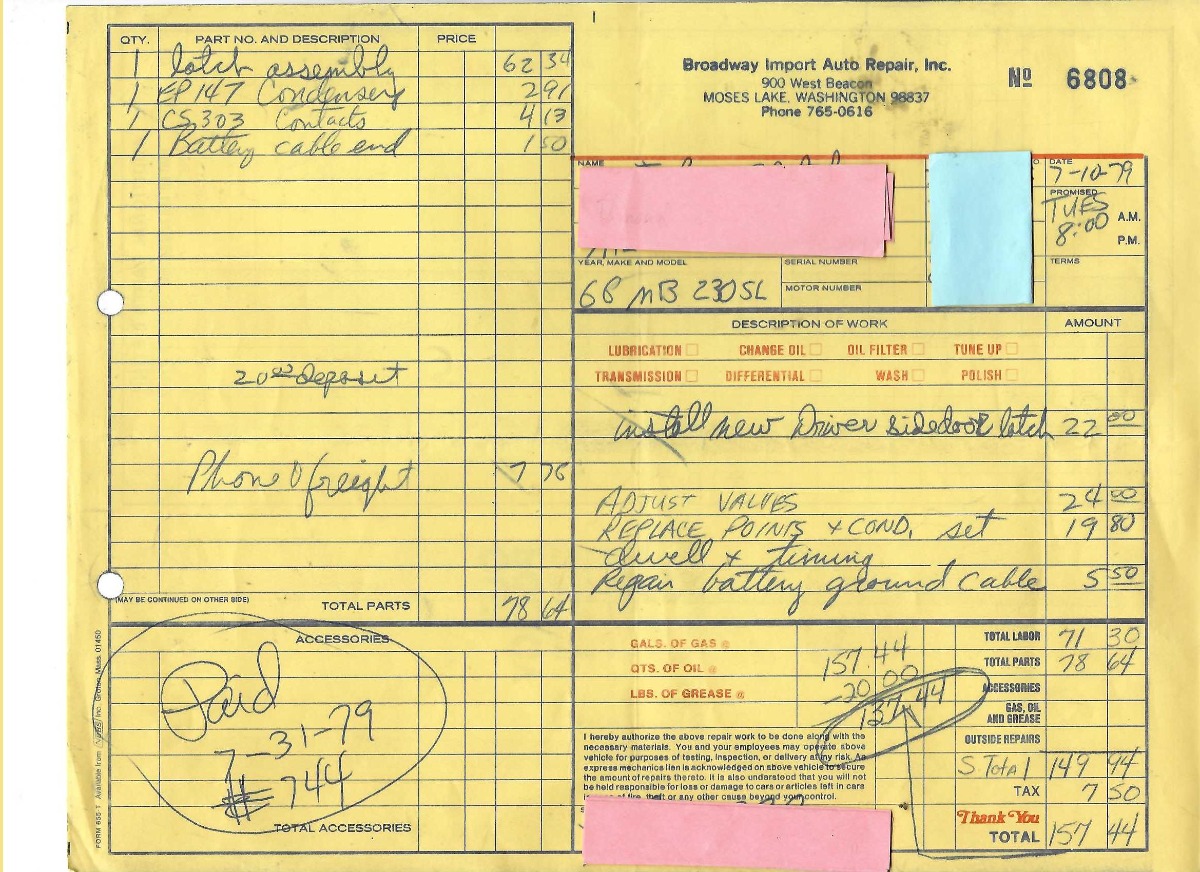 QTY. PART NO. AND DESCRIPTION PRICE
1 latch assembly 62 34
1 EP 147 Condenser 2 91
1 CS 303 Contacts 4 13
1 Battery cable end 1 50
20 00 deposit
Phone & freight 7 76
(MAY BE CONTINUED ON OTHER SIDE) TOTAL PARTS 78 64
ACCESSORIES
Paid
7-31-79
# 744
TOTAL ACCESSORIES
FORM 655-1 Available from Inc. Groton, Mass. 01450
Broadway Import Auto Repair, Inc.
900 West Beacon
MOSES LAKE, WASHINGTON 98837
Phone 765-0616
No 6808
NAME
DATE
7-10-79
PROMISED
TUES
8:00 A.M.
P.M.
YEAR, MAKE AND MODEL SERIAL NUMBER TERMS
68 MB 230SL MOTOR NUMBER
DESCRIPTION OF WORK AMOUNT
LUBRICATION CHANGE OIL OIL FILTER TUNE UP
TRANSMISSION DIFFERENTIAL WASH POLISH
install new Driver side door latch 22 00
ADJUST VALVES 24 00
REPLACE POINTS + COND. set 19 80
dwell + timing
Repair battery ground cable 5 50
GALS. OF GAS @ TOTAL LABOR 71 30
QTS. OF OIL @ 157.44 TOTAL PARTS 78 64
LBS. OF GREASE @ -20.00 ACCESSORIES
137.44 GAS, OIL AND GREASE
OUTSIDE REPAIRS
S Total 149 94
TAX 7 50
Thank You
TOTAL 157 44
I hereby authorize the above repair work to be done along with the
necessary materials. You and your employees may operate above
vehicle for purposes of testing, inspection, or delivery at my risk. An
express mechanics lien is acknowledged on above vehicle to secure
the amount of repairs thereto. It is also understood that you will not
be held responsible for loss or damage to cars or articles left in cars
in case of fire, theft or any other cause beyond your control.